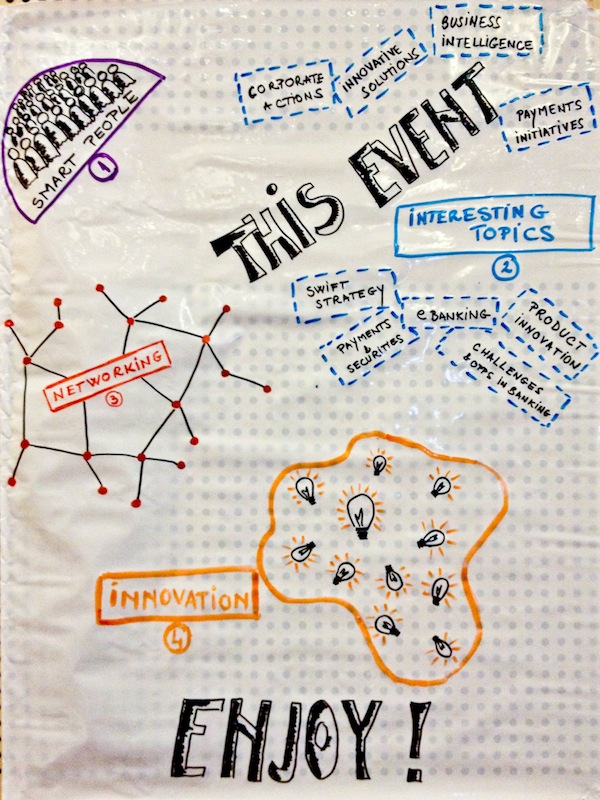 SMART PEOPLE
1
CORPORATE
ACTIONS
INNOVATIVE
SOLUTIONS
BUSINESS
INTELLIGENCE
PAYMENTS
INITIATIVES
THIS EVENT
INTERESTING
TOPICS
2
SWIFT
STRATEGY
PAYMENTS
&
SECURITIES
e BANKING
PRODUCT
INNOVATION
CHALLENGES
& OPPS IN BANKING
NETWORKING
3
INNOVATION
4
ENJOY!